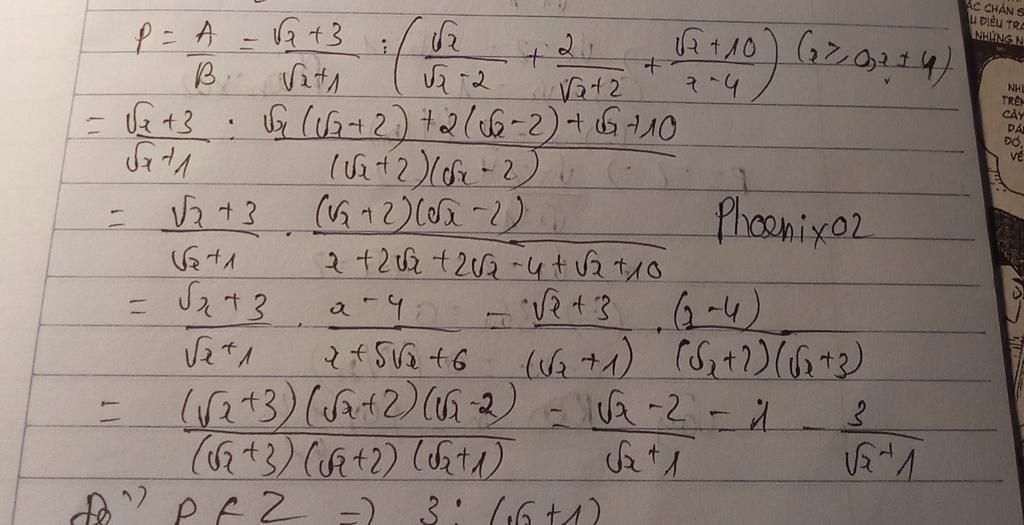 P = A/B = (√x + 3)/(√x + 1) : ( √x/(√x - 2) + 2/(√x + 2) + (√x + 10)/(x - 4) ) (x ≥ 0, x ≠ 4)
= (√x + 3)/(√x + 1) : (√x(√x + 2) + 2(√x - 2) + √x + 10)/((√x + 2)(√x - 2))
= (√x + 3)/(√x + 1) . ((√x + 2)(√x - 2))/(x + 2√x + 2√x - 4 + √x + 10)
Phoenix02
= (√x + 3)/(√x + 1) . (x - 4)/(x + 5√x + 6) = (√x + 3)/(√x + 1) . (x - 4)/((√x + 2)(√x + 3))
= ((√x + 3)(√x + 2)(√x - 2))/((√x + 3)(√x + 2)(√x + 1)) = (√x - 2)/(√x + 1) = 1 - 3/(√x + 1)
P ∈ Z => 3 ⋮ (√x + 1)
ÁC CHẮN S
U ĐIỀU TRA
NHỮNG N
NHI
TRÊN
CÂY
ĐÓ,
VỀ